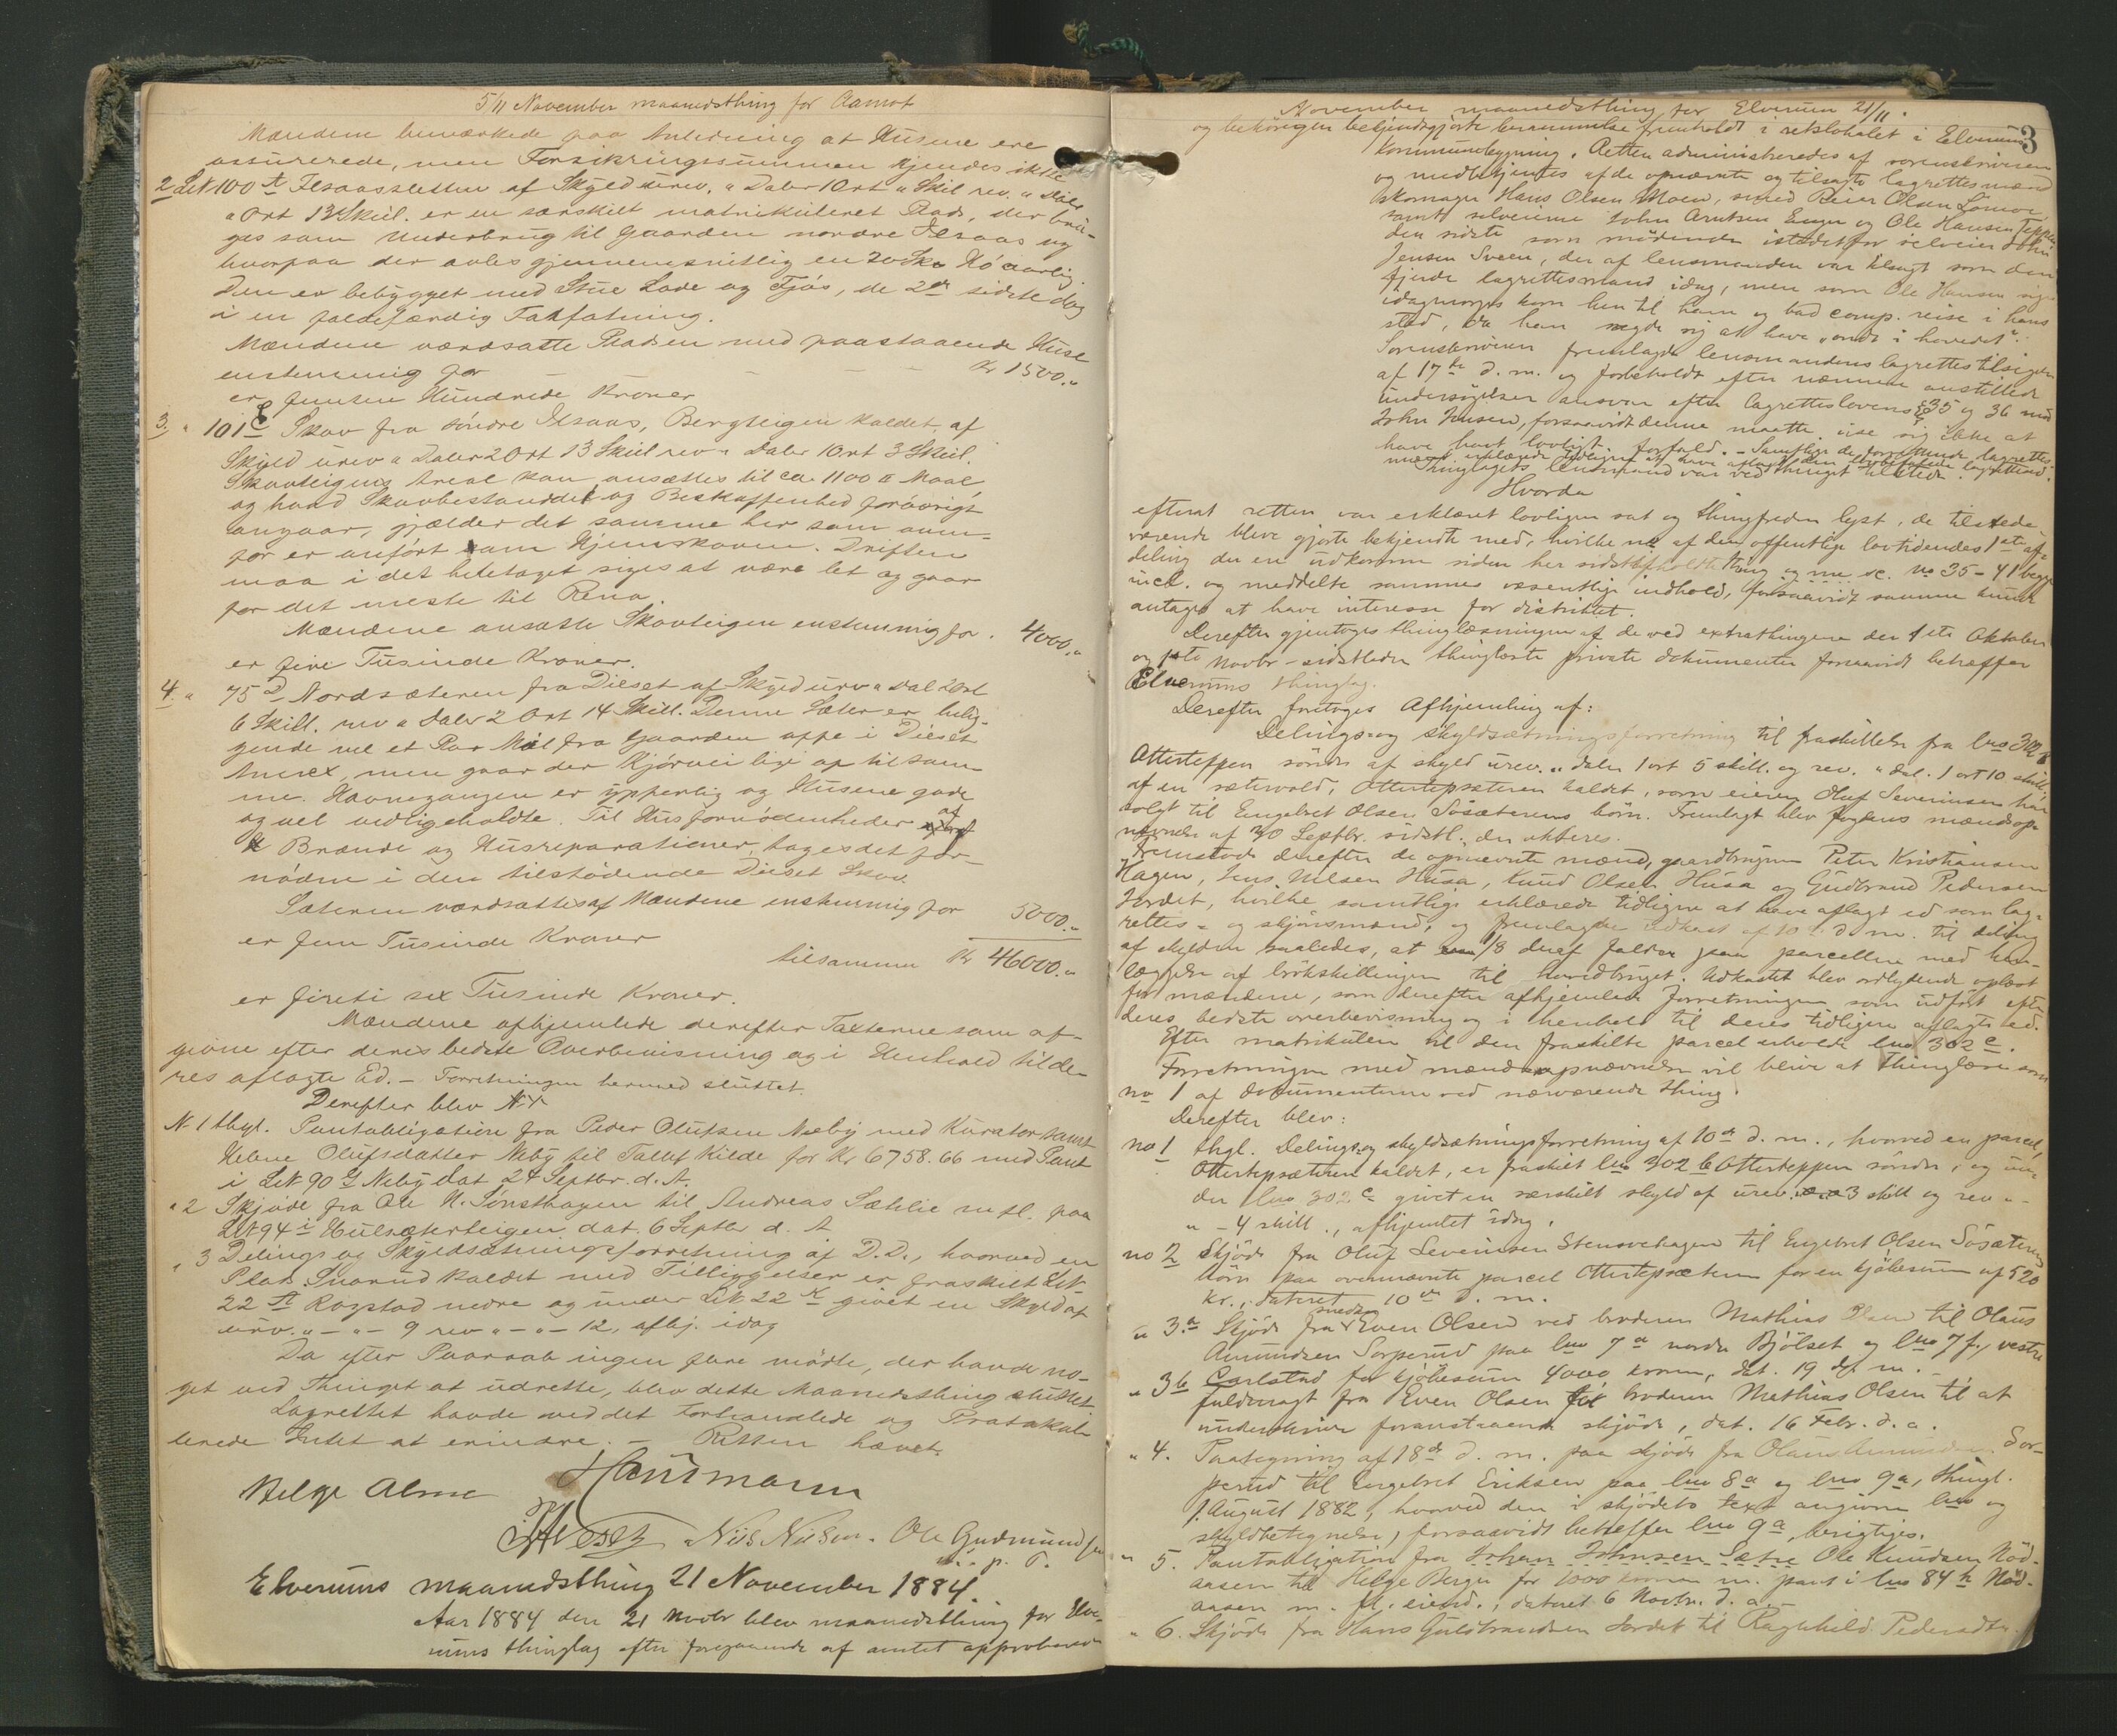 5/11 November maanedsthing for Aamot
Mændene bemærkede paa Anledning at Husene ere
assurerede, men Forsikringssummen kjendes ikke
2 LN 100 a Ilsaassletten af Skyld urev. " Daler 1 Ort " Skil rev. " Daler
" Ort 13 Skill. er en særskilt matrikuleret Plads, der bru-
ges som Underbrug til Gaarden nordre Ilsaas og
hvorpaa der avles gjennemsnitlig en 20 Sk Hö aarlig
Den er bebygget med Stue Lade og Fjös, de 2de sidste dog
i en faldefærdig Forfatning.
Mændene værdsatte Pladsen med paastaaende Huse
enstemmig for - - - - Kr 1500."
er femten Hundrede Kroner
3. " 101 c Skov fra söndre Ilsaas, Bergteigen kaldet, af
Skyld urev " Daler 2 Ort 13 Skill rev " Daler 1 Ort 3 Skill.
Skovteigens Areal kan ansættes til ca 1100 a Maal
og hvad Skovbestanddel og Beskaffenhed forövrigt
angaar, gjælder det samme her som oven-
for er anfört om Hjemskoven. Driften
maa i det heletaget siges at være let og gaar
for det meste til Rena.
Mændene ansatte Skovteigen enstemmig for . 4000."
er fire Tusinde Kroner.
4. " 75 D Nordsæteren fra Dieset af Skyld urv " Dal 2 Ort
6 Skill. rev " Daler 2 Ort 14 Skill. Denne Sæter er belig-
gende vel et Par Mil fra Gaarden oppe i Dieset
Annex, men gaar der Kjörvei lige op til sam-
me. Havnegangen er ypperlig og Husene gode
og vel vedligeholdte. Til Husfornödenheder af
Brænde og Husreparationer, tages det for-
nödne i den tilstödende Diset Skov.
Sæteren værdsattes af Mændene enstemmig for 5000."
er fem Tusinde Kroner
tilsammen Kr 46000."
er fireti sex Tusinde Kroner.
Mændene afhjemlede derefter Taxterne som af-
givne efter deres bedste Overbevisning og i Henhold til de-
res aflagte Ed. — Forretningen hermed sluttet.
Derefter blev
N. 1 thgl. Pantobligation fra Peder Olufsen Neby med Kurator samt
Helene Olufsdatter Neby til Tallef Kilde for Kr 6758.66 med Pant
i LN 90 d Neby dat 24 Septbr. d. A.
" 2 Skjöde fra Ole N. Sönsthagen til Andreas Sæhlie m fl. paa
LN 94 i Hulsæterteigen dat. 6 Septbr d. A
" 3 Delings og Skyldsætningsforretning af D.D., hvorved en
Plads Snarud kaldet med Tilliggelser er fraskilt LN
22 a Rogstad nedre og under LN 22 k givet en Skyld af
urv. " - " - 9 rev " - " - 12, afhj. idag
Da efter Paaraab ingen flere mödte, der havde no-
get ved Thinget at udrette, blev dette Maanedsthing sluttet
Lagrettet havde ved det Forhandlede og Protokol-
lerede Intet at erindre. — Retten hævet.
Hansmann
Helge Alme
Nils Nilsen. Ole Gudmundsen
p. P.
Elverums maanedsthing 21 November 1884.
Aar 1884 den 21 Novbr blev maanedsthing for Elve-
rums thinglag efter foregaaende af amtet approberede
November maanedsthing for Elverum 21/11.
3
og behörigen bekjendtgjorte berammelse fremholdt i retslokalet i Elverums
kommunebygning. Retten administreredes af sorenskriveren
og medbetjentes af de opnævnte og tilsagte lagrettesmænd
skomager Hans Olsen Moen, smed Peier Olsen Lömoe
samt selveierne John Arntsen Enger og Ole Hansen Teppen
den sidste som mödende istedetfor selveier John
Jensen Sveen, der af lensmanden var tilsagt som den
fjerde lagrettesmand idag, men som Ole Hansen siger
idagmorges kom hen til ham og bad comp. reise i hans
sted, da han sagde sig at have „ondt i hovedet".
Sorenskriveren fremlagde lensmandens lagrettestilsigelse
af 17de d. m. og forbeholdt efter nærmere anstillede
undersögelser ansvar efter lagretteslovens §§ 35 og 36 mod
John Jensen, forsaavidt denne maatte vise sig ikke at
have havt lovligt forfald. — Samtlige de fremmødte lagrettes-
mænd erklærede tidligere at have aflagt den lovbefalede lagretteed.
Thinglagets lensmand var ved thinget tilstede.
Hvorda
efterat retten var erklæret lovligen sat og thingfreden lyst, de tilstede-
værende bleve gjorte bekjendte med, hvilke no af den offentlige lovtidendes 1ste af-
deling der en udkommen siden her sidst afholdte thing og ne sc. No 35 - 41 begge
incl. og meddelte sammes væsentlige indhold, forsaavidt samme kunde
antages at have interesse for distriktet.
Derefter gjentoges thinglæsningen af de ved extrathingene den 1ste Oktober
og 1ste Novbr sidstleden thinglæste private dokumenter forsaavidt betræffer
Elverums thinglag.
Derefter foretoges Afhjemling af:
Delings- og skyldsætningsforretning til fraskillelse fra lno 302 b
Otterteppen söndre af skyld urev. " daler 1 ort 5 skill. og rev. " dal. 1 ort 10 skill.
af en sætervold, Ottertepsæteren kaldet, som eieren Oluf Severinsen har
solgt til Engebret Olsen Sösæterens börn. Fremlagt blev fogdens mændsop-
nævnelse af 30 Septbr. sidstl., der akteres.
Fremstod derefter de opnævnte mænd, gaardbruger Peter Kristiansen
Hagen, Jens Nilsen Husa, Knud Olsen Husa og Gudbrand Pedersen
Jordet, hvilke samtlige erklærede tidligere at have aflagt ed som lag-
rettes- og skjönsmænd, og fremlagde udkast af 10de d. m. til deling
af skylden saaledes, at 1/8 deraf falder paa parcellen med hen-
læggelse af brökskillingen til hovedbruget. Udkastet blev ordlydende oplæst
for mændene, som derefter afhjemlede forretningen som udfört efter
deres bedste overbevisning og i henhold til deres tidligere aflagte ed.
Efter matrikulen vil den fraskilte parcel erholde lno 302 c.
Forretningen med mændsopnævnelse vil blive at thinglæse som
no 1 af dokumenterne ved nærværende thing.
Derefter blev:
no 1 thgl. Delings og skyldsætningsforretning af 10de d. m., hvorved en parcel,
Ottertepsæteren kaldet, er fraskilt lno 302 b Otterteppen söndre, og un-
der lno 302 c givet en særskilt skyld af urev. " " 3 skill og rev " -
" - 4 skill., afhjemlet idag.
no 2 Skjöde fra Oluf Severinsen Stensvehagen til Engebret Olsen Sösæterens
börn paa ovennævnte parcel Ottertepsæteren for en kjöbesum af 520
kr., dateret 10de d. m.
" 3.a Skjöde fra smeden Even Olsen ved broderen Mathias Olsen til Olaus
Amundsen Sorperud paa lno 7 a nordre Bjölset og lno 7 f., vestre
Carlstad for kjöbesum 4000 kroner, dat. 19 ds. m.
" 3 b fuldmagt fra Even Olsen til broderen Mathias Olsen til at
underskrive foranstaaende skjöde, dat. 16 Febr. d. a.
" 4. Paategning af 18de d. m. paa skjöde fra Olaus Amundsen Sor-
perud til Engebret Eriksen paa lno 8 a og lno 9 a, thingl.
1. August 1882, hvorved den i skjödets text angivne lno og
skyldbetegnelse, forsaavidt betræffer lno 9 a, berigtiges.
" 5. Pantobligation fra Johan Johnsen Sætre Ole Knudsen Nöd-
aasen til Helge Berger for 1000 kroner m. pant i lno 84 h Nöd-
aasen m. fl. eiend., dateret 6 Novbr. d. a.
" 6. Skjöde fra Hans Guldbrandsen Jordet til Ragnhild Pedersdtr.